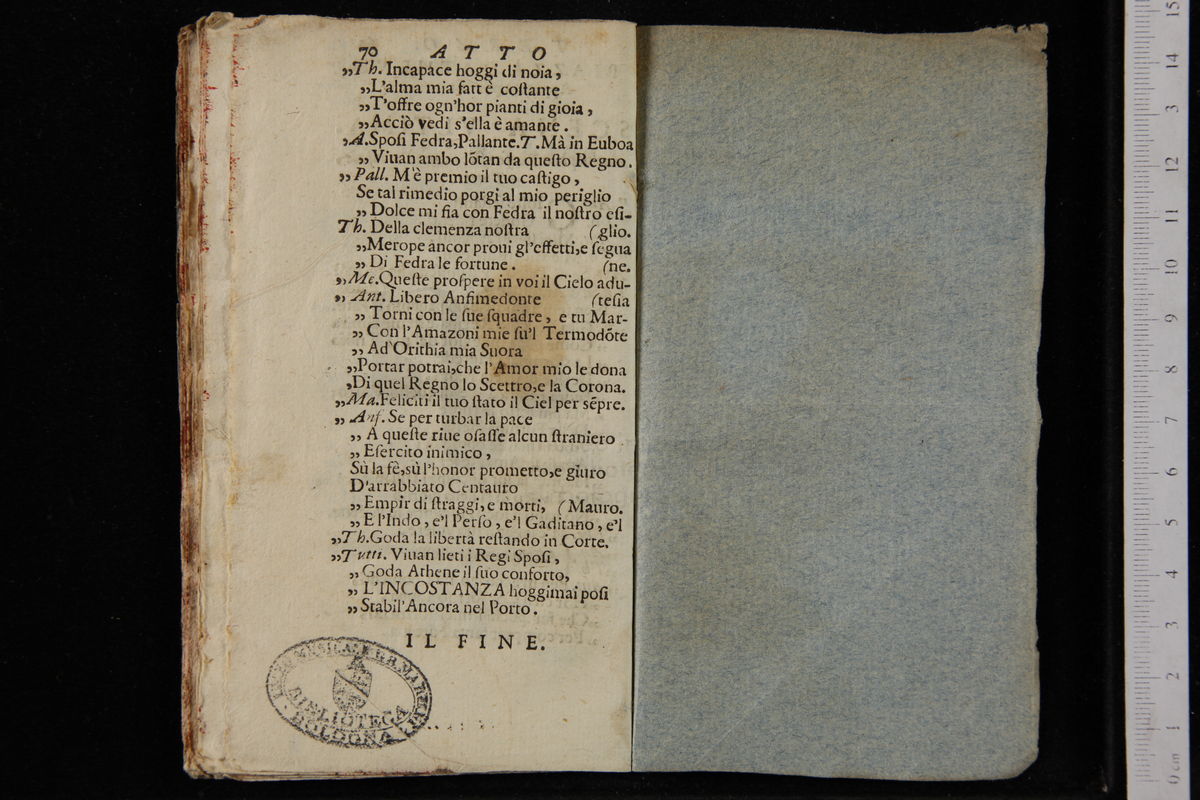 70 ATTO
„Th. Incapace hoggi di noia,
„L'alma mia fatt è costante
„T'offre ogn'hor pianti di gioia,
„Acciò vedi s'ella è amante.
„A. Sposi Fedra, Pallante. T. Mà in Euboa
„Viuan ambo lõtan da questo Regno.
„Pall. M'è premio il tuo castigo,
Se tal rimedio porgi al mio periglio
„Dolce mi fia con Fedra il nostro esi-
Th. Della clemenza nostra (glio.
„Merope ancor proui gl'effetti, e segua
„Di Fedra le fortune. (ne.
„Me. Queste prospere in voi il Cielo adu-
„Ant. Libero Anfimedonte (tesia
„Torni con le sue squadre, e tu Mar-
„Con l'Amazoni mie su'l Termodõte
„Ad'Orithia mia Suora
„Portar potrai, che l'Amor mio le dona
„Di quel Regno lo Scettro, e la Corona.
„Ma. Feliciti il tuo stato il Ciel per sẽpre.
„Anf. Se per turbar la pace
„A queste riue osasse alcun straniero
„Esercito inimico,
Sù la fè, sù l'honor prometto, e giuro
D'arrabbiato Centauro
„Empir di straggi, e morti, (Mauro.
„E l'Indo, e'l Perso, e'l Gaditano, e'l
„Th. Goda la libertà restando in Corte.
„Tutti. Viuan lieti i Regi Sposi,
„Goda Athene il suo conforto,
„L'INCOSTANZA hoggimai posi
„Stabil'Ancora nel Porto.
IL FINE.
BIBLIOTECA
BOLOGNA